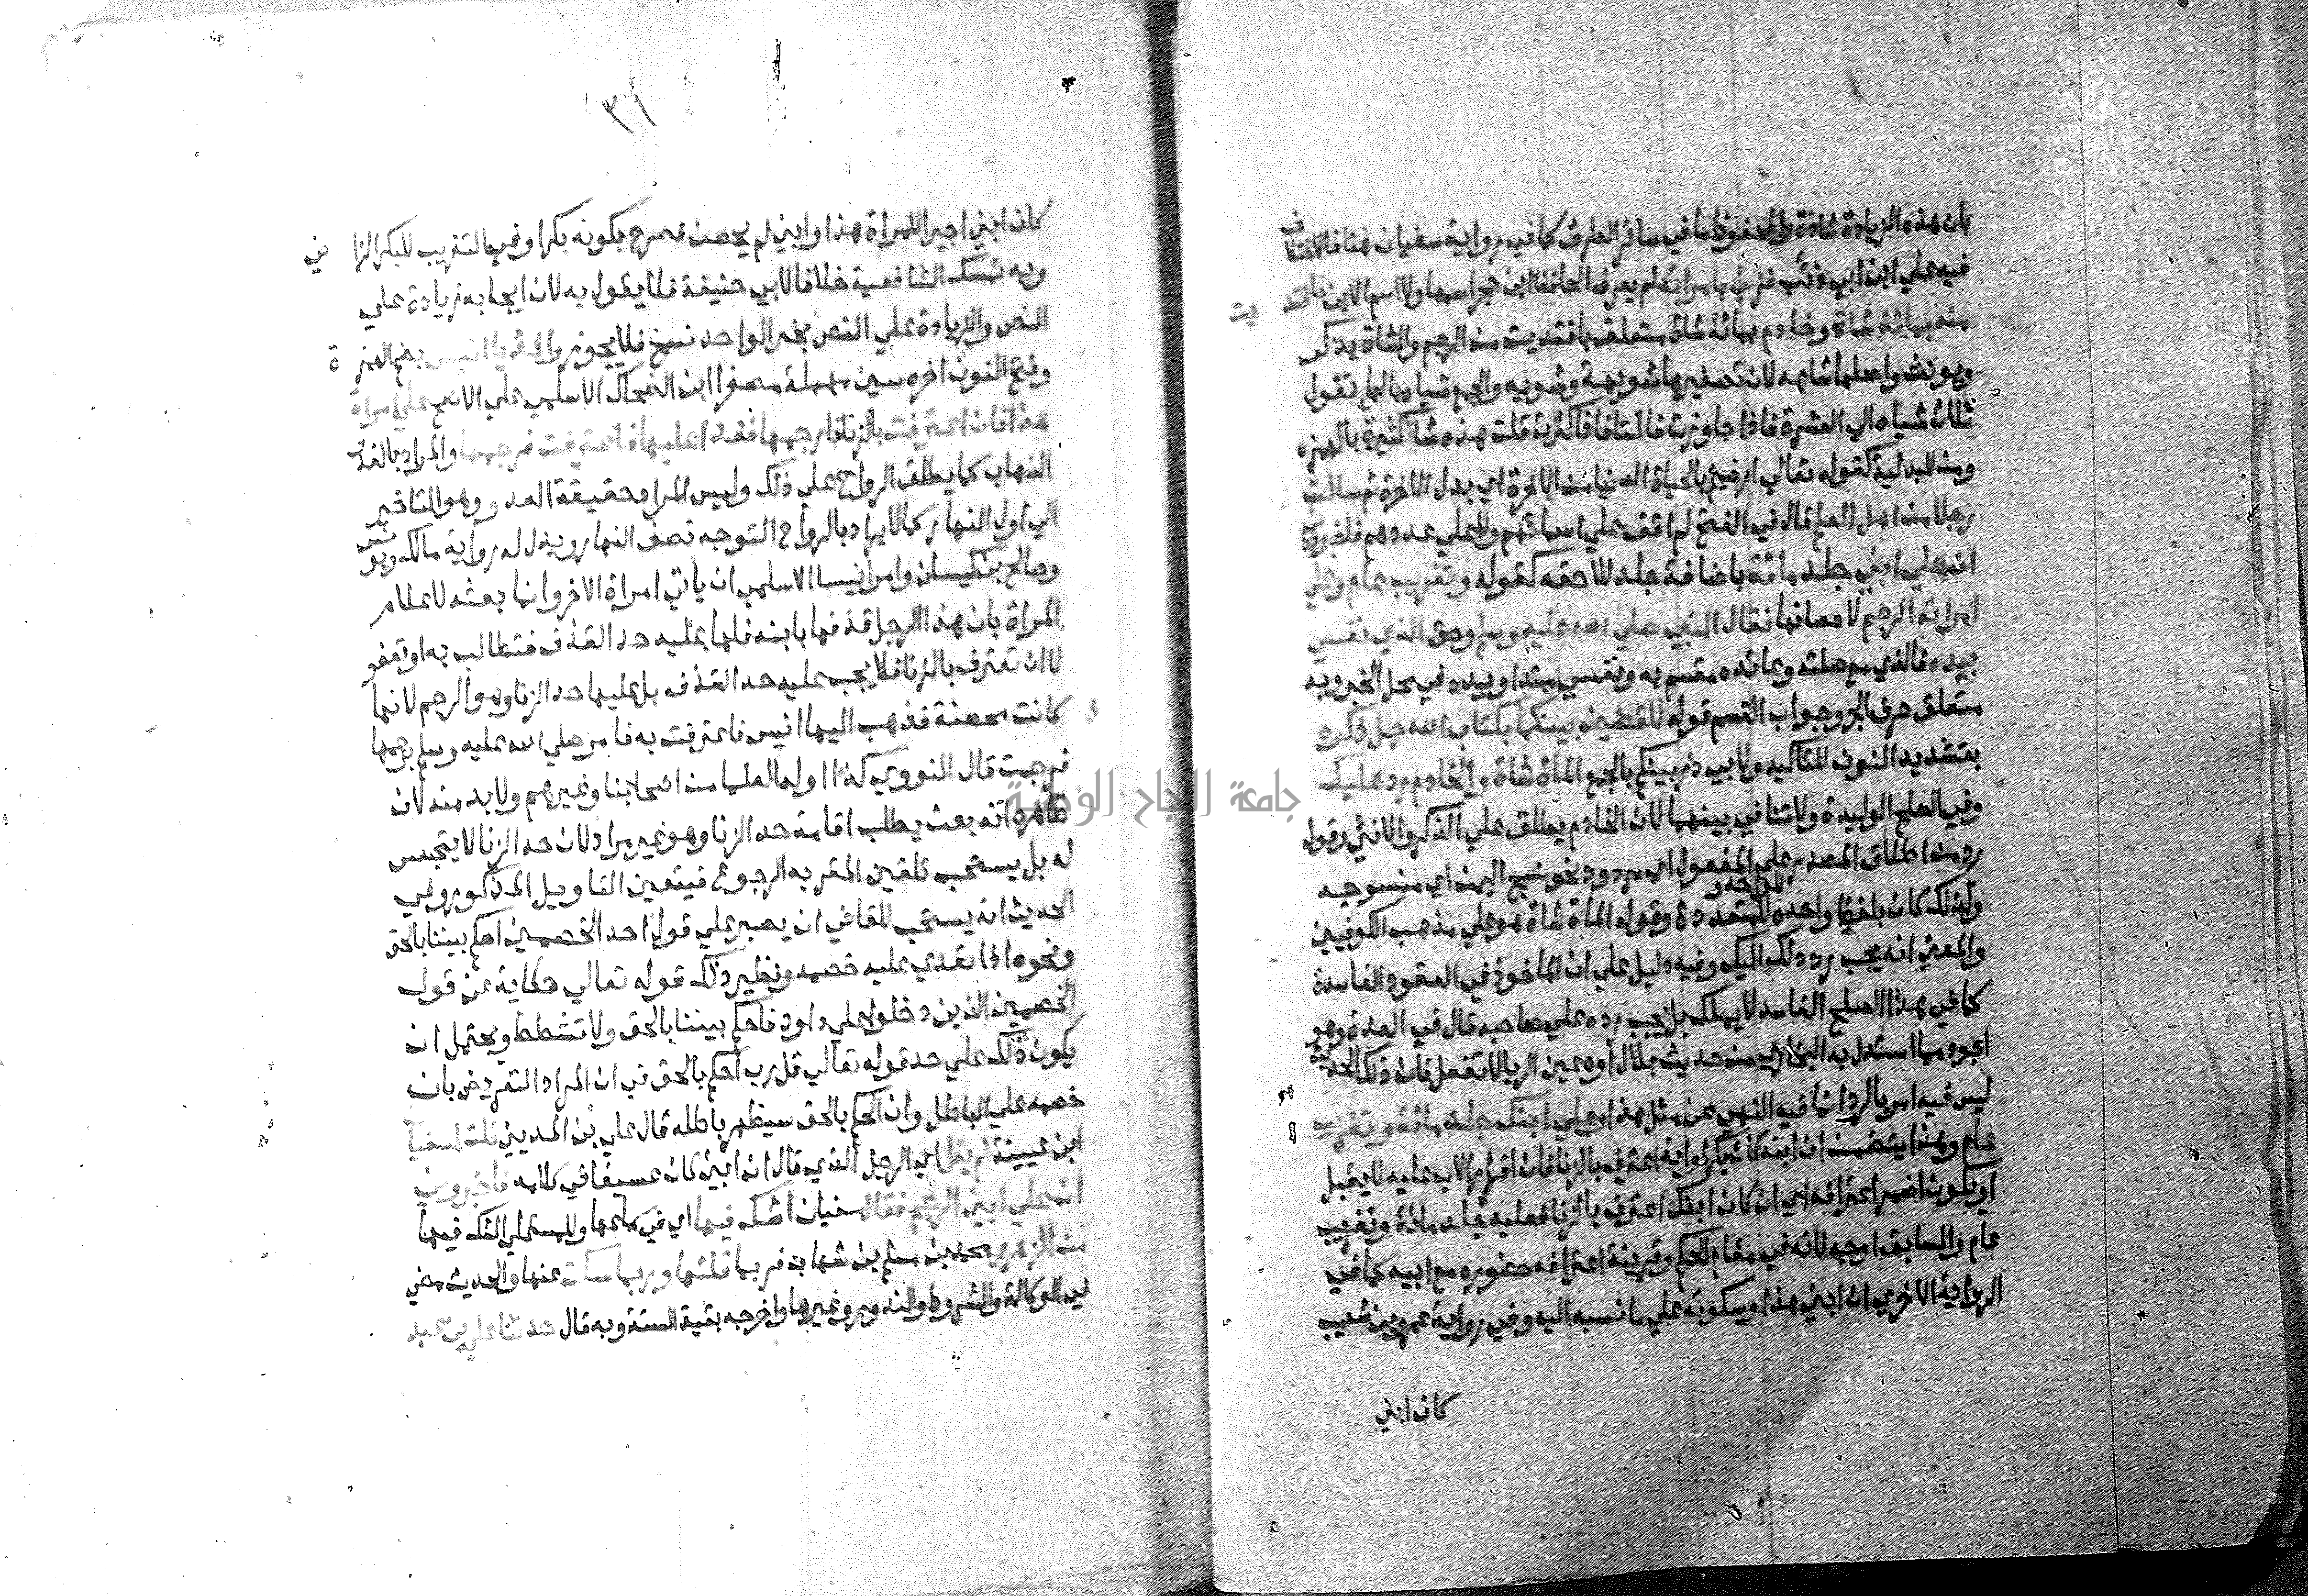 بان هذه الزيادة شاذة والمحفوظ ما في سائر الطرق كما في رواية سفيان هنا فالاختلاف
فيه علي ابن ابي ذئب فزني بامراته لم يعرف الحافظ ابن حجر اسمها ولا اسم الابن فافتديت
منه بمائة شاة وخادم بمائة شاة متعلق بافتديت من الرجم والشاة يذكر
ويونث واصلها شاهه لان تصغيرها شويهة وشويه والجمع شياه بالهاء تقول
ثلاث شياه الي العشرة فاذا جاوزت فبالتا فاذا كثرت قلت هذه شاء كثيرة بالهمزه
ومن للبدلية كقوله تعالي ارضيتم بالحياة الدنيا من الاخرة اي بدل الاخرة ثم سالت
رجالا من اهل العلم قال في الفتح لم اقف علي اسمائهم ولا علي عددهم فاخبروني
ان علي ابني جلد مائة باضافة جلد للاحقه كقوله وتغريب عام وعلي
امراته الرجم لاحصانها فقال النبي صلي الله عليه وسلم وحق الذي نفسي
بيده فالذي مع صلته وعائده مقسم به ونفسي مبتدا وبيده في محل الخبر وبه
متعلق حرف الجر وجواب القسم قوله لاقضين بينكما بكتاب الله جل ذكره
بتشديد النون للتاكيد ولابي ذر بينكم بالجمع المائة شاة والخادم رد عليك
وفي الصلح الوليدة ولا تنافي بينهما لان الخادم يطلق علي الذكر والانثي وقوله
رد من اطلاق المصدر علي المفعول اي مردود نحو نسج اليمن اي منسوجه
ولذلك كان بلفظ واحد للواحد و للمتعدد وقوله المائة شاة هو علي مذهب الكوفيين
والمعني انه يجب رد ذلك اليك وفيه دليل علي ان الماخوذ في العقود الفاسدة
كما في هذا الصلح الفاسد لا يملك بل يجب رده علي صاحبه قال في العدة وهو
اجود مما استدل به البخاري من حديث بلال اوه عين الربا لا تفعل فان ذلك الحديث
ليس فيه امر بالرد انما فيه النهي عن مثل هذا وعلي ابنك جلد مائة وتغريب
عام وهذا يتضمن ان ابنه كان بكرا وانه اعترف بالزنا فان اقرار الاب عليه لا يقبل
او يكون اضمر اعترافه اي ان كان ابنك اعترف بالزنا فعليه جلد مائة وتغريب
عام والسابق اوجه لانه في مقام الحكم وقرينة اعترافه حضوره مع ابيه كما في
الرواية الاخري ان ابني هذا وسكوته علي ما نسبه اليه وفي رواية عمرو بن شعيب
كان ابني
٣١
كان ابني اجيرا لامراة هذا وابني لم يحصن فصرح بكونه بكرا وفيه التغريب للبكر الزاني
وبه تمسك الشافعية خلافا لابي حنيفة فلا يقول به لان ايجابه زيادة علي
النص والزيادة علي النص بخبر الواحد نسخ فلا يجوز واغد يا انيس بضم الهمزة
وفتح النون اخره سين مهملة مصغرا ابن الضحاك الاسلمي علي الاصح علي امراة
هذا فان اعترفت بالزنا فارجمها فغدا عليها فاعترفت فرجمها والمراد بالغدو
الذهاب كما يطلق الرواح علي ذلك وليس المراد حقيقة الغدو وهو التاخير
الي اول النهار كما لا يراد بالرواح التوجه نصف النهار ويدل له رواية مالك ويونس
وصالح بن كيسان وامر انيسا الاسلمي ان ياتي امراة الاخر وانما بعثه لاعلام
المراة بان هذا الرجل قذفها بابنه فلها عليه حد القذف فتطالب به او تعفو
لا ان تعترف بالزنا فلا يجب عليه حد القذف بل عليها حد الزنا وهو الرجم لانها
كانت محصنة فذهب اليها انيس فاعترفت به فامر صلي الله عليه وسلم برجمها
فرجمت قال النووي كذا اوله العلما من اصحابنا وغيرهم ولا بد منه لان
ظاهره انه بعث يطلب اقامة حد الزنا وهو غير مراد لان حد الزنا لا يتجسس
له بل يستحب تلقين المقر به الرجوع فيتعين التاويل المذكور وفي
الحديث انه يستحب للقاضي ان يصبر علي قول احد الخصمين احكم بيننا بالحق
ونحوه اذا تعدي عليه خصمه ونظير ذلك قوله تعالي حكاية عن قول
الخصمين الذين دخلوا علي داود فاحكم بيننا بالحق ولا تشطط ويحتمل ان
يكون ذلك علي حد قوله تعالي قل رب احكم بالحق في ان المراد التعريض بان
خصمه علي الباطل وان الحكم بالحق سيظهر باطله قال علي بن المديني قلت لسفيان
ابن عيينة لم يقل اي الرجل الذي قال ان ابني كان عسيفا في كلامه فاخبروني
ان علي ابني الرجم فقال سفيان اشك فيها اي في سماعها وللمستملي الشك فيها
من الزهري محمد بن مسلم بن شهاب فربما قلتها وربما سكت عنها والحديث مضي
في الوكالة والشروط والنذور وغيرها واخرجه بقية الستة وبه قال حدثنا علي بن عبد
جامعة النجاح الوطنية